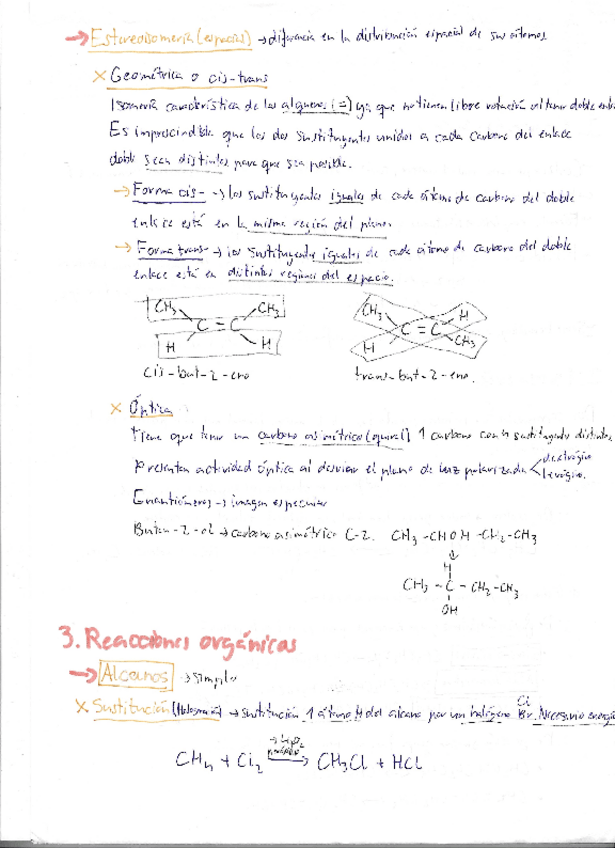 → Estereoisomería (espacial) → diferencia en la distribución espacial de sus átomos
x Geométrica o cis-trans
Isomería característica de los alquenos (=) ya que no tienen libre rotación al tener doble enlace
Es imprescindible que los dos sustituyentes unidos a cada carbono del enlace
doble sean distintos para que sea posible.
→ Forma cis- → los sustituyentes iguales de cada átomo de carbono del doble
enlace está en la misma región del plano
→ Forma trans- → los sustituyentes iguales de cada átomo de carbono del doble
enlace está en distintas regiones del espacio.
CH3 CH3 CH3 H
C = C C = C
H H H CH3
cis-but-2-eno trans-but-2-eno.
x Óptica
Tiene que tener un carbono asimétrico (quiral) 1 carbono con 4 sustituyentes distintos
Presentan actividad óptica al desviar el plano de luz polarizada < dextrógiro
levógiro.
Enantiómeros → imagen especular
Butan-2-ol → carbono asimétrico C-2. CH3 -CHOH -CH2-CH3
↓
H
CH3 - C - CH2-CH3
OH
3. Reacciones orgánicas
→ Alcanos → simple
x Sustitución (Halogenación) → sustitución 1 átomo H del alcano por un halógeno Cl Br. Necesario energía
CH4 + Cl2 → CH3Cl + HCl